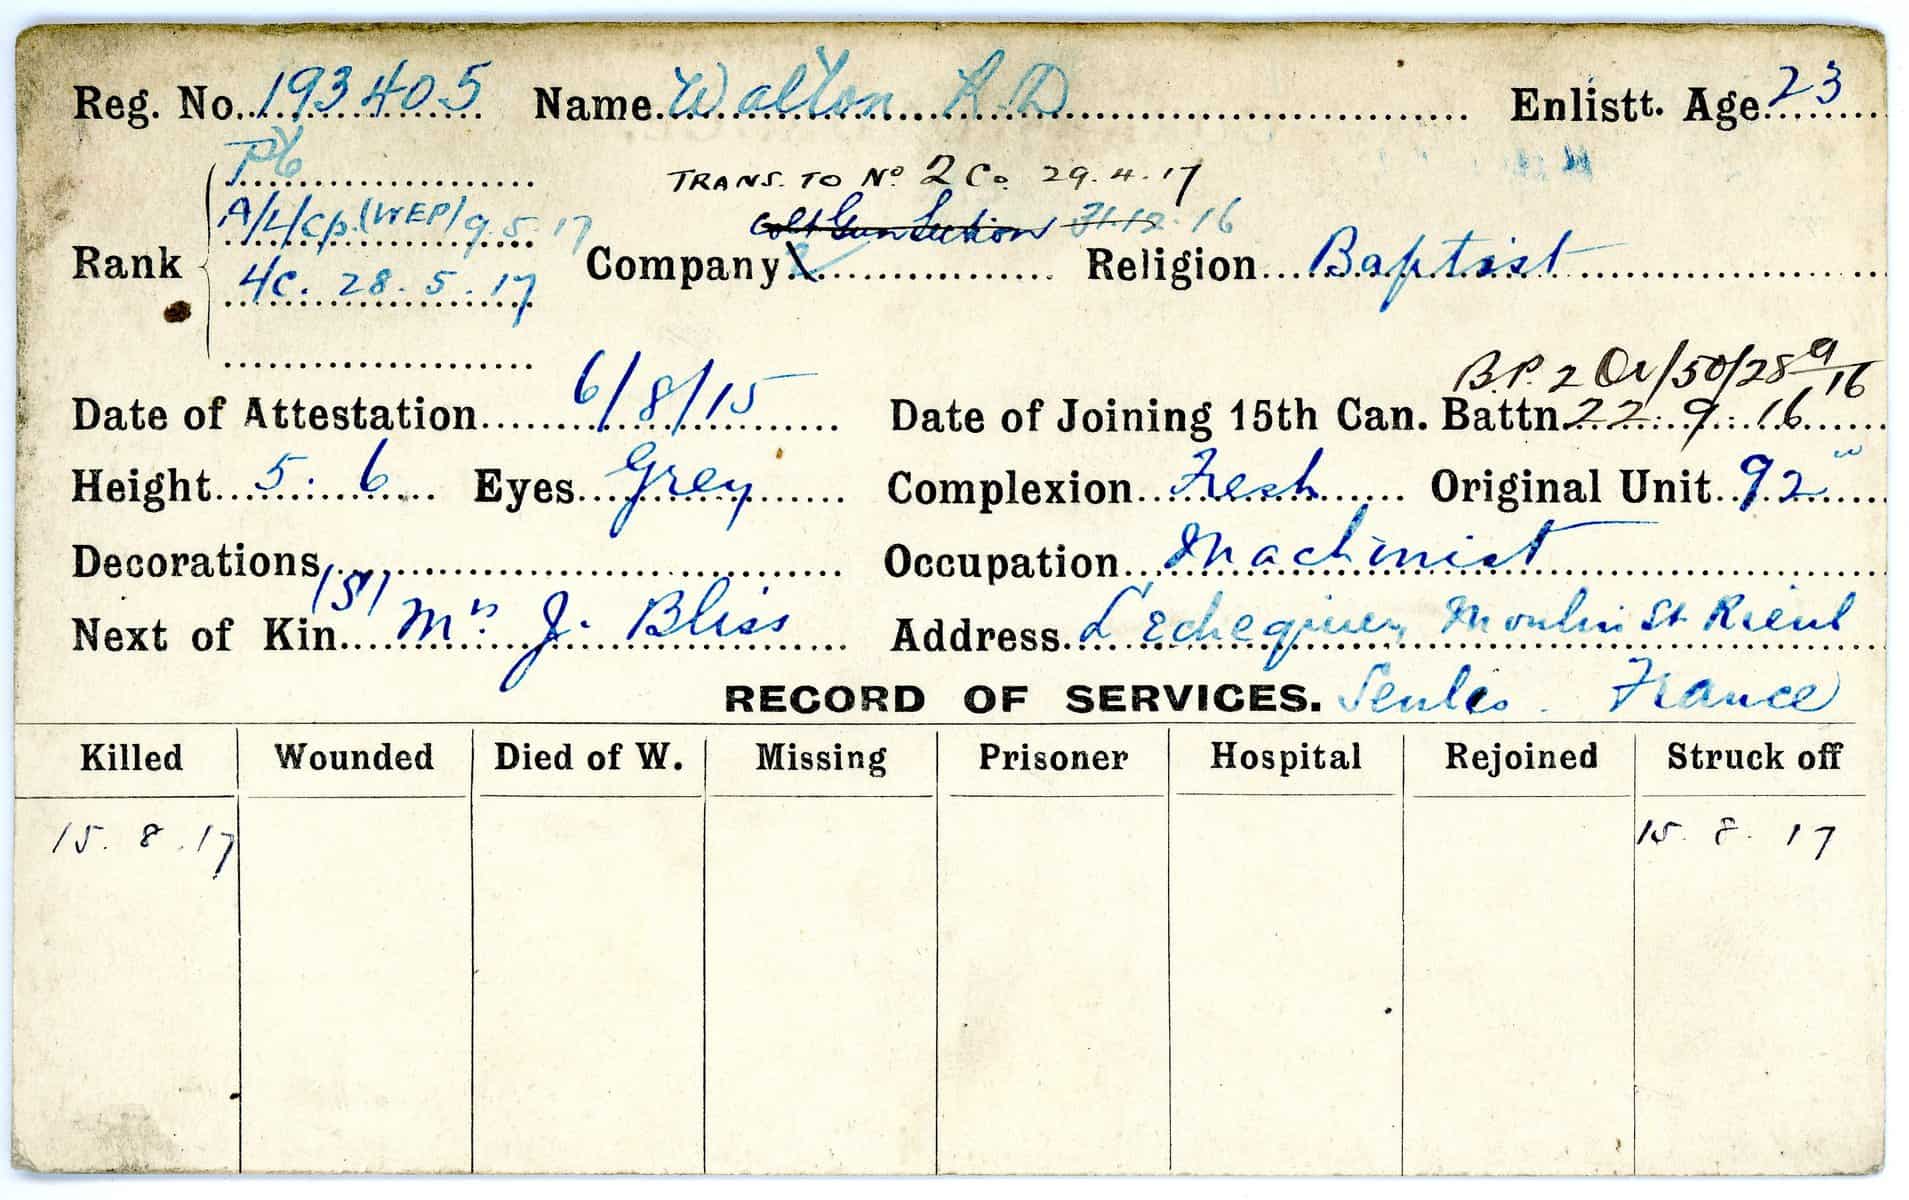 Reg. No. 193405 Name Walton R.D Enlistt. Age 23
Pte
TRANS. TO No 2 Co. 29.4.17
A/L/Cp. (WEP) 9.5.17
Colt Gun Section 31.12.16
Rank Company 2 Religion Baptist
L/C. 28.5.17
B.P. 2 Or/50/28 9/16
Date of Attestation 6/8/15 Date of Joining 15th Can. Battn. 22.9.16
Height 5.6 Eyes Grey Complexion Fresh Original Unit 92nd
Decorations Occupation Machinist
(S)
Next of Kin Mrs. J. Bliss Address L'Echequier, Moulin St Rieul
RECORD OF SERVICES. Senlis. France
Killed Wounded Died of W. Missing Prisoner Hospital Rejoined Struck off
15.8.17 15.8.17